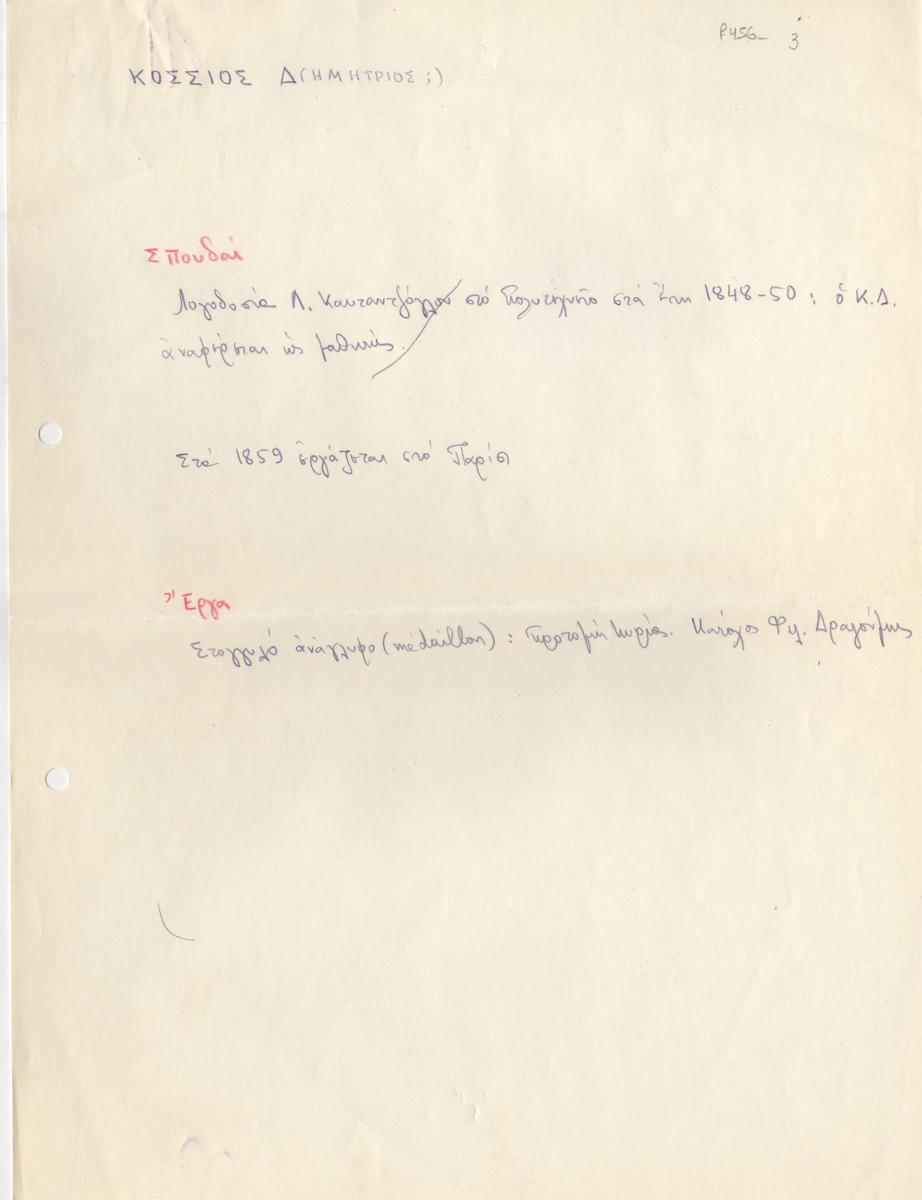 P456- 3
ΚΟΣΣΙΟΣ Δ(ΗΜΗΤΡΙΟΣ;)
Σπουδαί
Λογοδοσία Λ. Καυταντζόγλου στό Πολυτεχνεῖο στά ἔτη 1848-50: ὁ Κ.Δ.
ἀναφέρεται ὡς μαθητής.
Στά 1859 ἐργάζεται στό Παρίσι
Ἔργα
Στρογγυλό ἀνάγλυφο (médaillon): Προτομή κυρίας. Κάτοχος Φιλ. Δραγούμης